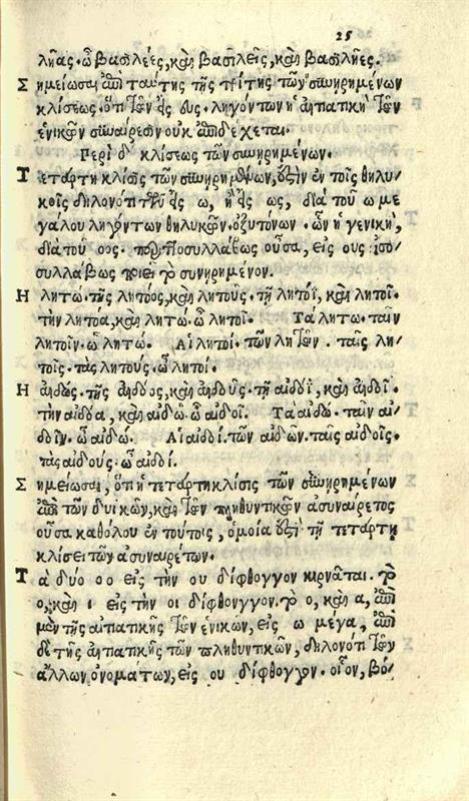 25
λῆας. ὦ βασιλέες, καὶ βασιλεῖς, καὶ βασιλῆες.
Σημείωσαι ἀπὸ ταύτης τῆς τρίτης τῶν συνῃρημένων
κλίσεως. ὅτι τῶν εἰς υς. ληγόντων ἡ αἰτιατικὴ τῶν
ἑνικῶν συναίρεσιν οὐκ ἀποδέχεται.
Περὶ δ κλίσεως τῶν συνῃρημένων.
Τετάρτη κλίσις τῶν συνῃρημένων, ἐστὶν ἐν τοῖς θηλυ-
κοῖς δηλονότι τῶν εἰς ω, ἢ εἰς ως, διὰ τοῦ ω με
γάλου ληγόντων θηλυκῶν. ὀξυτόνων. ὧν ἡ γενικὴ,
διὰ τοῦ οος. περιττοσυλλάβως οὖσα, εἰς ους ἰσο-
συλλάβως ποιεῖ τὸ συνῃρημένον.
Η λητώ. τῆς λητόος, καὶ λητοῦς. τῇ λητόϊ, καὶ λητοῖ.
τὴν λητόα, καὶ λητώ. ὦ λητοῖ. Τὰ λητώ. ταῖν
λητοῖν. ὦ λητώ. Αἱ λητοί. τῶν λητῶν. ταῖς λη-
τοῖς. τὰς λητούς. ὦ λητοί.
Η αἰδώς. τῆς αἰδόος, καὶ αἰδοῦς. τῇ αἰδόϊ, καὶ αἰδοῖ.
τὴν αἰδόα, καὶ αἰδῶ. ὦ αἰδοῖ. Τὰ αἰδώ. ταῖν αἰ-
δοῖν. ὦ αἰδώ. Αἱ αἰδοί. τῶν αἰδῶν. ταῖς αἰδοῖς.
τὰς αἰδούς. ὦ αἰδοί.
Σημείωσαι, ὅτι ἡ τετάρτη κλίσις τῶν συνῃρημένων
ἀπὸ τῶν δυικῶν, καὶ τῶν πληθυντικῶν ἀσυναίρετος
οὖσα καθόλου ἐν τούτοις, ὁμοία ἐστὶ τῇ τετάρτῃ
κλίσει τῶν ἀσυναιρέτων.
Τὰ δύο οο εἰς τὴν ου δίφθογγον κιρνᾶται. τὸ
ο, καὶ ι εἰς τὴν οι δίφθογγον. τὸ ο, καὶ α, ἀπὸ
μὲν τῆς αἰτιατικῆς τῶν ἑνικῶν, εἰς ω μέγα, ἀπὸ
δὲ τῆς αἰτιατικῆς τῶν πληθυντικῶν, δηλονότι τῶν
ἄλλων ὀνομάτων, εἰς ου δίφθογγον. οἷον, βό-